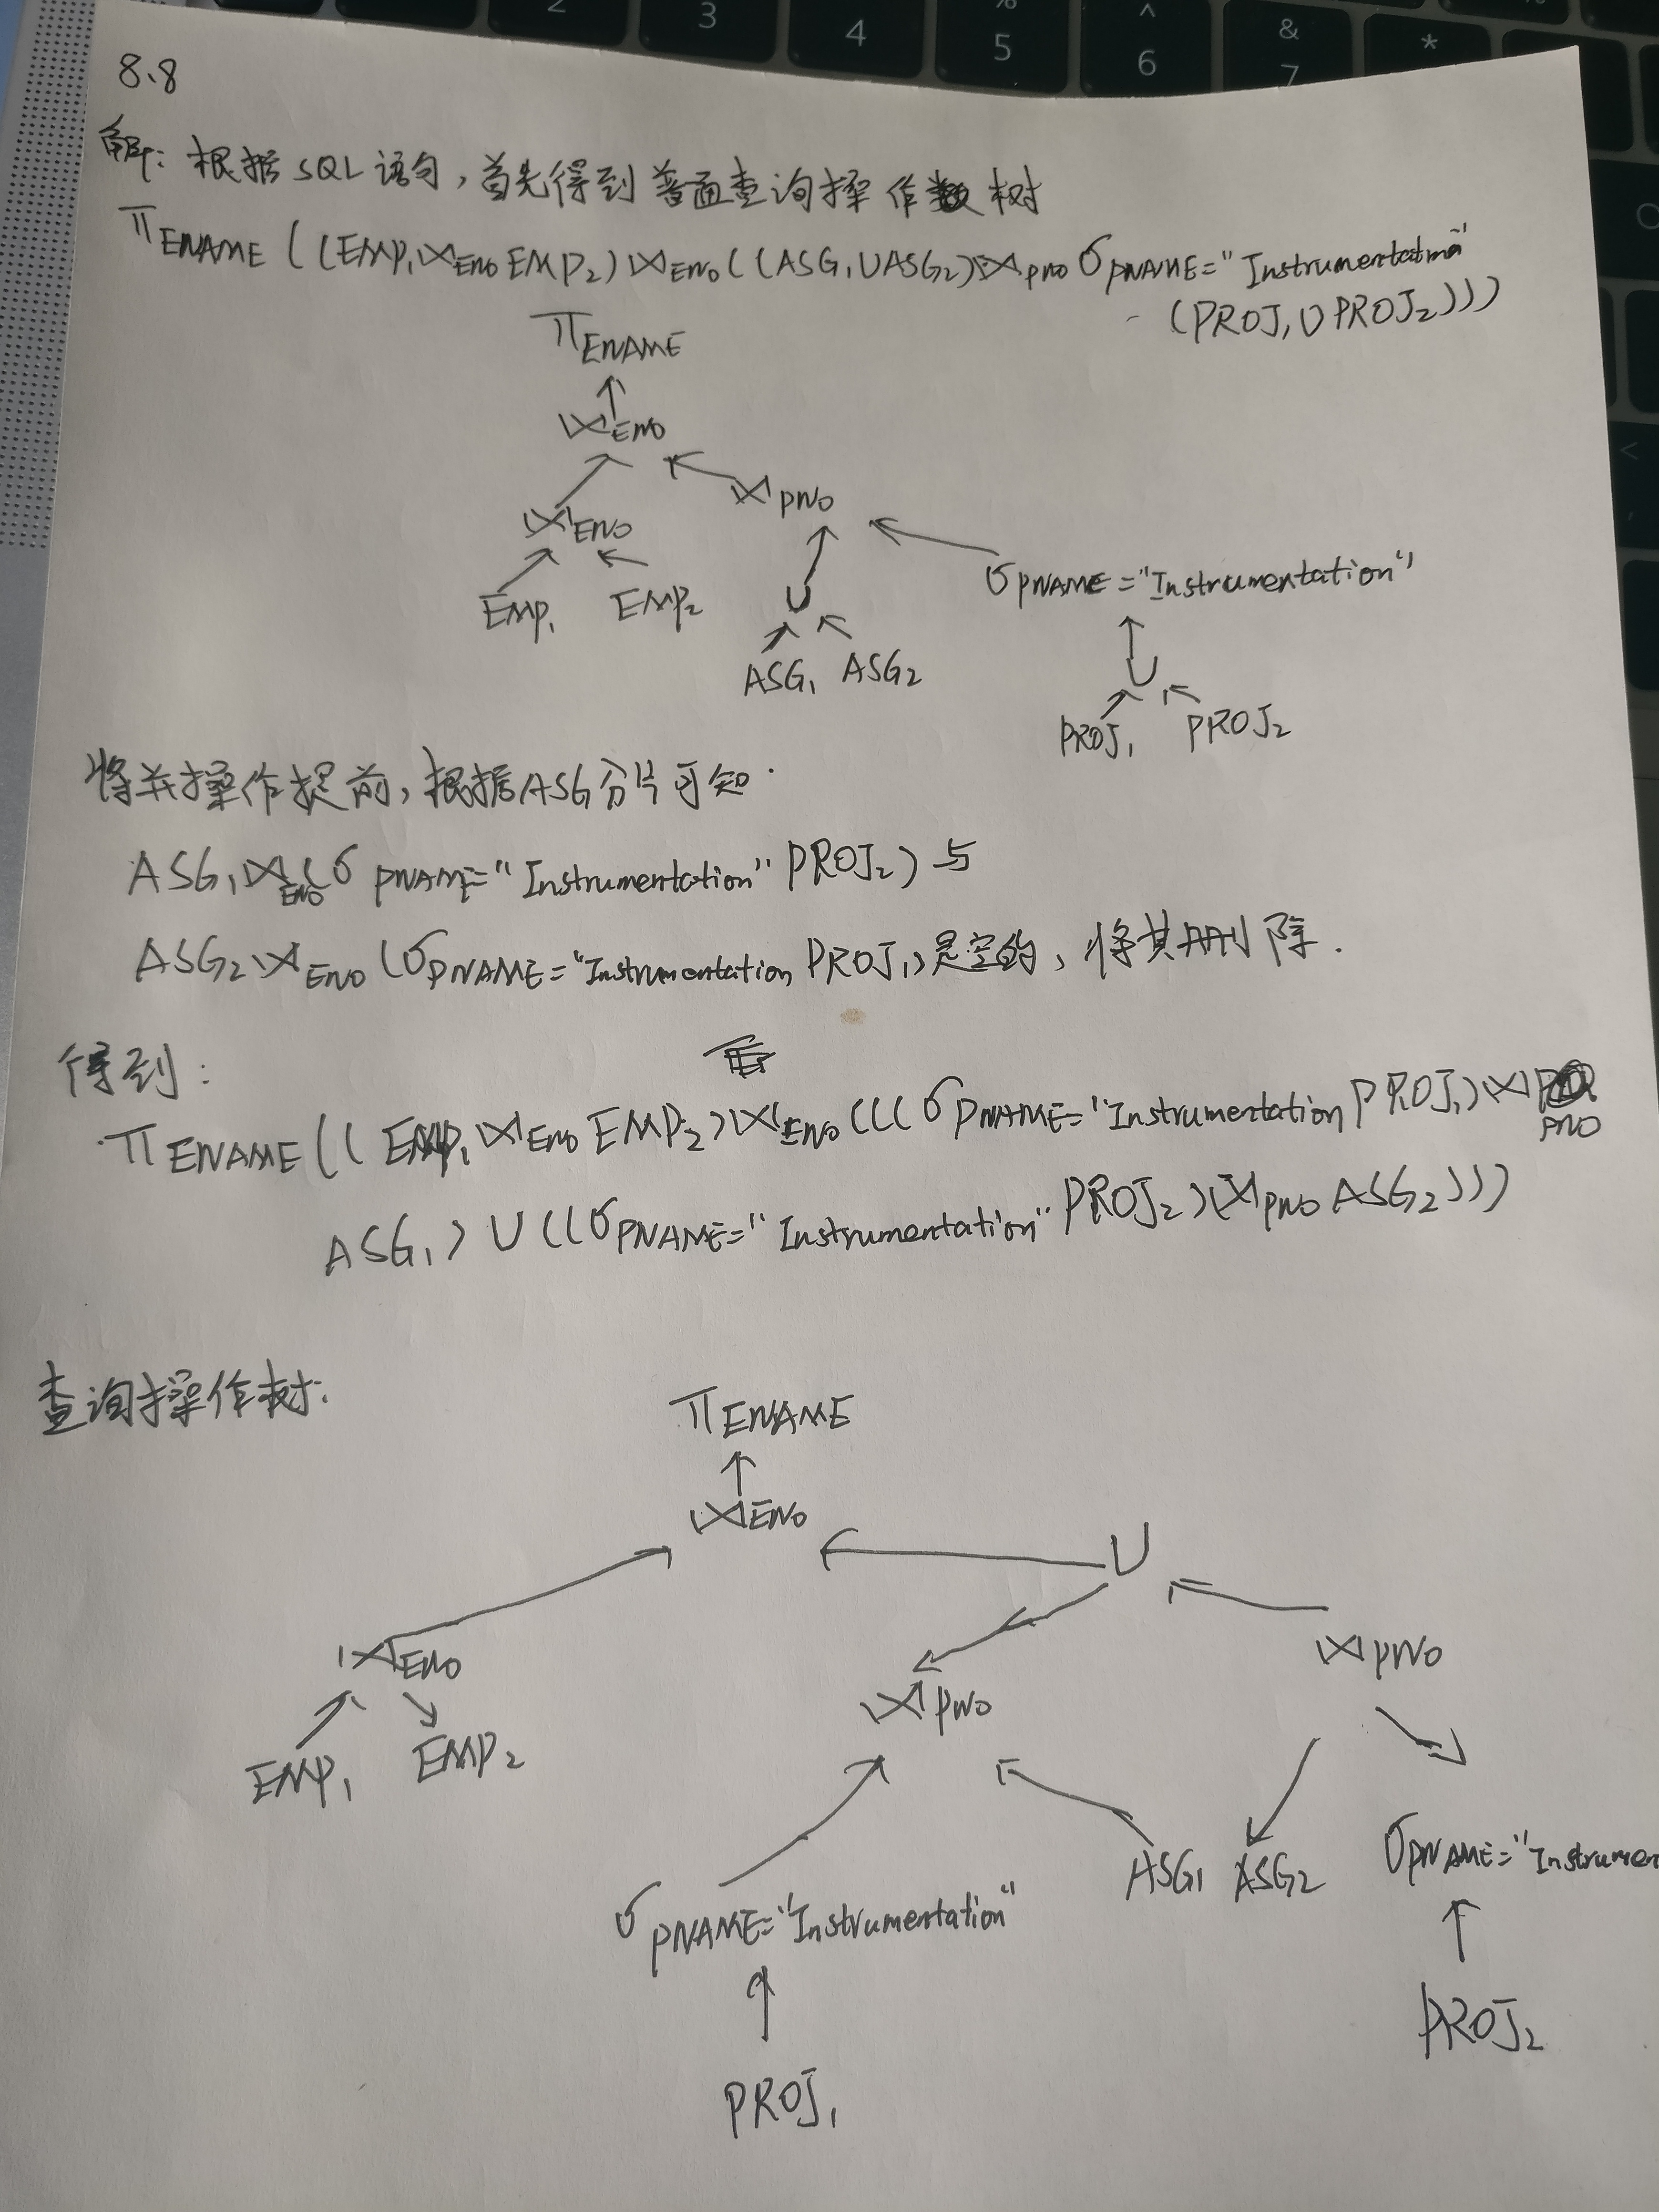 2 3 4 % 5 ^ 6 & 7 *
8.8
解: 根据SQL语句,首先得到普通查询操作树
πENAME ((EMP₁⋈ENO EMP₂)⋈ENO((ASG₁∪ASG₂)⋈PNO σPNAME="Instrumentation"
(PROJ₁∪PROJ₂)))
πENAME
⋈ENO
⋈PNO
⋈ENO
σPNAME="Instrumentation"
EMP₁ EMP₂ ∪
ASG₁ ASG₂ ∪
PROJ₁ PROJ₂
将并操作提前,根据ASG分片可知.
ASG₁⋈ENO(σPNAME="Instrumentation" PROJ₂)与
ASG₂⋈ENO(σPNAME="Instrumentation PROJ₁)是空的,将其删除.
得到:
πENAME((EMP₁⋈ENO EMP₂)⋈ENO(((σPNAME="Instrumentation PROJ₁)⋈PNO
ASG₁)∪((σPNAME="Instrumentation" PROJ₂)(⋈PNO ASG₂)))
查询操作树:
πENAME
⋈ENO ∪
⋈ENO ⋈PNO ⋈PNO
EMP₁ EMP₂
ASG₁ ASG₂ σPNAME="Instrumen
σPNAME="Instrumentation"
PROJ₁ PROJ₂